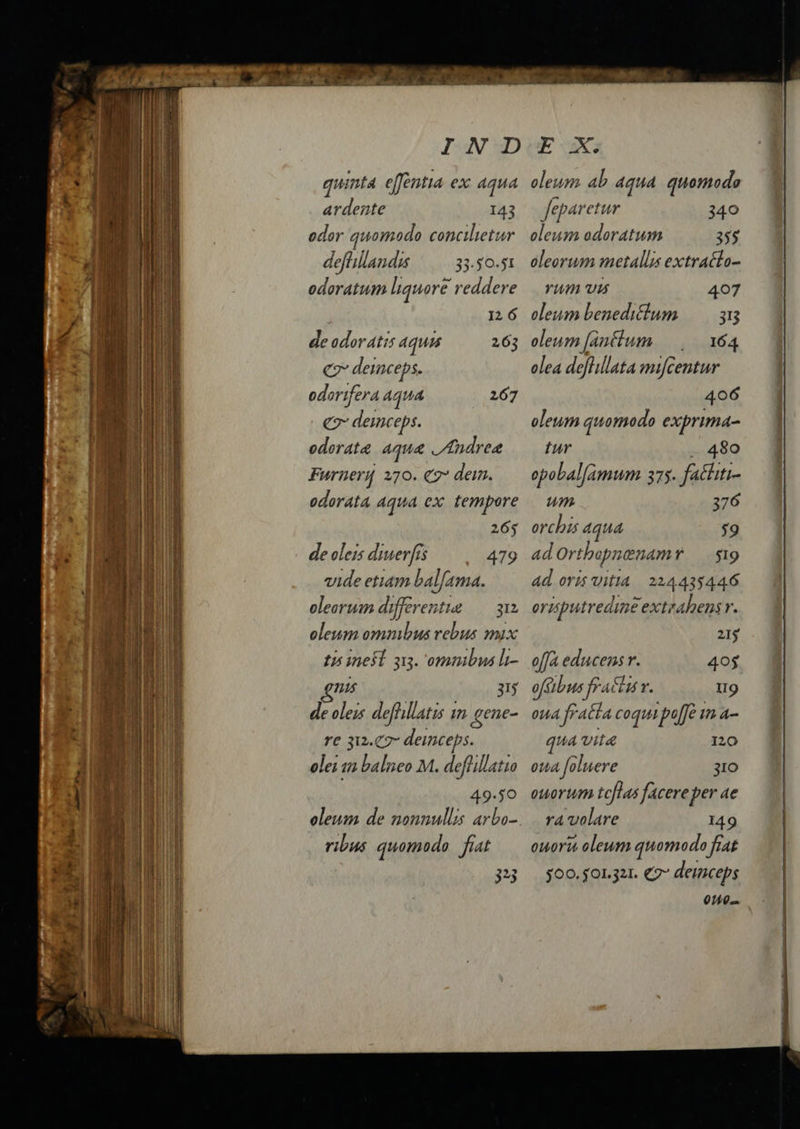 INDEX.
quinta eſſentia ex aqua
ardente 143
odor quomodo concilietur
deſtillandis 33.50.51
odoratum liquorē reddere
12 6
de odoratis aquis 263
& deinceps.
odorifera aqua 267
& deinceps.
odoratæ aquæ Andreæ
Furnerij 270. & dein.
odorata aqua ex tempore
265
de oleis diuerſis 479
vide etiam balſama.
oleorum differentiæ 312
oleum omnibus rebus mix
tis inest 313. omnibus li-
gnis 315
de oleis deſtillatis in gene-
re 312.& deinceps.
olei in balneo M. deſtillatio
49.50
oleum de nonnullis arbo-
ribus quomodo fiat
323
oleum ab aqua quomodo
ſeparetur 340
oleum odoratum 355
oleorum metallis extracto-
rum vis 407
oleum benedictum 313
oleum ſanctum 164
olea deſtillata miſcentur
406
oleum quomodo exprima-
tur 480
opobalſamum 375. factiti-
um 376
orchis aqua 59
ad Orthopnœnam r 519
ad oris vitia 224435446
oris putredinē extrahens r.
215
oſſa educens r. 405
oſſibus fractis r. 119
oua fracta coqui poſſe in a-
qua vitæ 120
oua ſoluere 310
ouorum teſtas facere per ae
ra volare 149
ouorū oleum quomodo fiat
500.501.321. & deinceps
ouo-